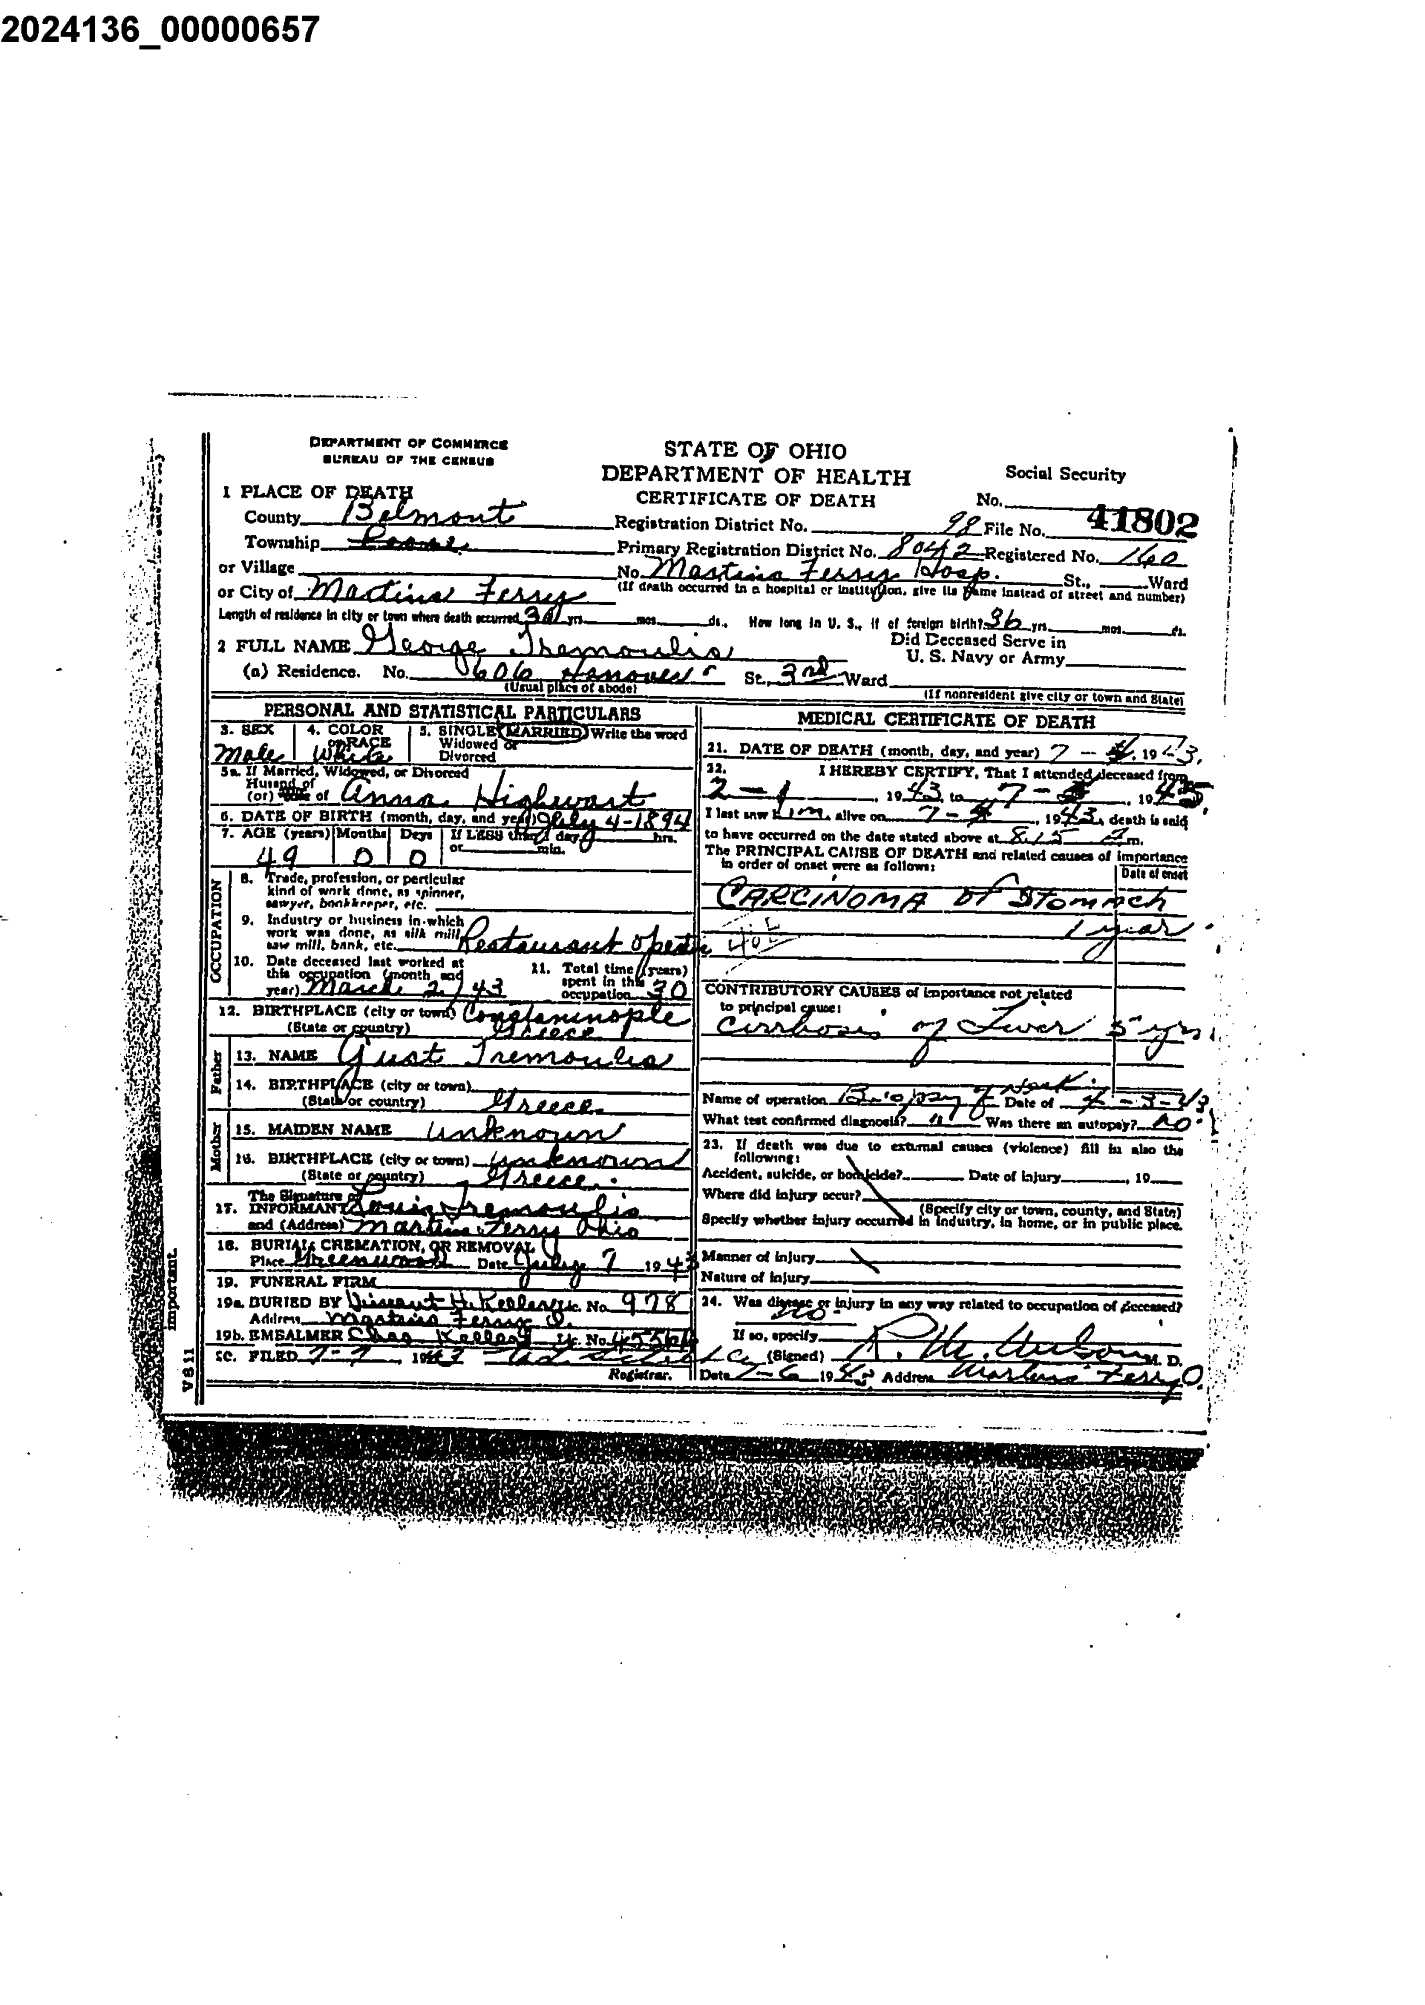 2024136_00000657
DEPARTMENT OF COMMERCE
BUREAU OF THE CENSUS
STATE OF OHIO
DEPARTMENT OF HEALTH
CERTIFICATE OF DEATH
Social Security
No.
1 PLACE OF DEATH
County Belmont
Registration District No. 98 File No. 41802
Township
Primary Registration District No. 8042 Registered No. 160
or Village
No. Martins Ferry Hosp. St., Ward
or City of Martins Ferry
(If death occurred in a hospital or institution, give its name instead of street and number)
Length of residence in city or town where death occurred 30 yrs. mos. ds. How long in U. S., if of foreign birth? 36 yrs. mos. ds.
2 FULL NAME George Tremoulis
Did Deceased Serve in
U. S. Navy or Army
(a) Residence. No. 606 Hanover St., 3rd Ward
(Usual place of abode)
(If nonresident give city or town and State)
PERSONAL AND STATISTICAL PARTICULARS
3. SEX
4. COLOR
or RACE
5. SINGLE MARRIED Write the word
Widowed or
Divorced
Male White
5a. If Married, Widowed, or Divorced
Husband of
(or) Wife of Anna Highwart
6. DATE OF BIRTH (month, day, and year) July 4-1894
7. AGE (years) Months Days If LESS than 1 day, hrs.
or min.
49 0 0
OCCUPATION
8. Trade, profession, or particular
kind of work done, as spinner,
sawyer, bookkeeper, etc.
9. Industry or business in which
work was done, as silk mill,
saw mill, bank, etc. Restaurant
10. Date deceased last worked at
this occupation (month and
year) March 2, 43
11. Total time (years)
spent in this
occupation 30
12. BIRTHPLACE (city or town) Constaninople
(State or country) Greece
Father
13. NAME Gust Tremoulis
14. BIRTHPLACE (city or town)
(State or country) Greece
Mother
15. MAIDEN NAME Unknown
16. BIRTHPLACE (city or town) Unknown
(State or country) Greece
The Signature of
17. INFORMANT Louis Tremoulis
and (Address) Martins Ferry Ohio
18. BURIAL, CREMATION, OR REMOVAL
Place Greenwood Date July 7 1943
19. FUNERAL FIRM
19a. BURIED BY H. Lic. No. 978
Address Martins Ferry O.
19b. EMBALMER Chas. Lic. No.
20. FILED 7-7, 19
Registrar.
MEDICAL CERTIFICATE OF DEATH
21. DATE OF DEATH (month, day, and year) 7 - 1943.
22. I HEREBY CERTIFY, That I attended deceased from
2-1, 1943, to 7- , 19
I last saw him alive on 7- , 1943, death is said
to have occurred on the date stated above at 8:15 m.
The PRINCIPAL CAUSE OF DEATH and related causes of importance
in order of onset were as follows:
Date of onset
CARCINOMA of Stomach
1 year
CONTRIBUTORY CAUSES of importance not related
to principal cause:
Cirrhosis of Liver 5 yrs.
Name of operation Biopsy of Neck Date of 4-3-43
What test confirmed diagnosis? " Was there an autopsy? No
23. If death was due to external causes (violence) fill in also the
following:
Accident, suicide, or homicide? Date of injury , 19
Where did injury occur?
(Specify city or town, county, and State)
Specify whether injury occurred in industry, in home, or in public place.
Manner of injury
Nature of injury
24. Was disease or injury in any way related to occupation of deceased?
no
If so, specify
(Signed) M. D.
Date 7-6 19 Address Martins Ferry O.
Important.
V S 11